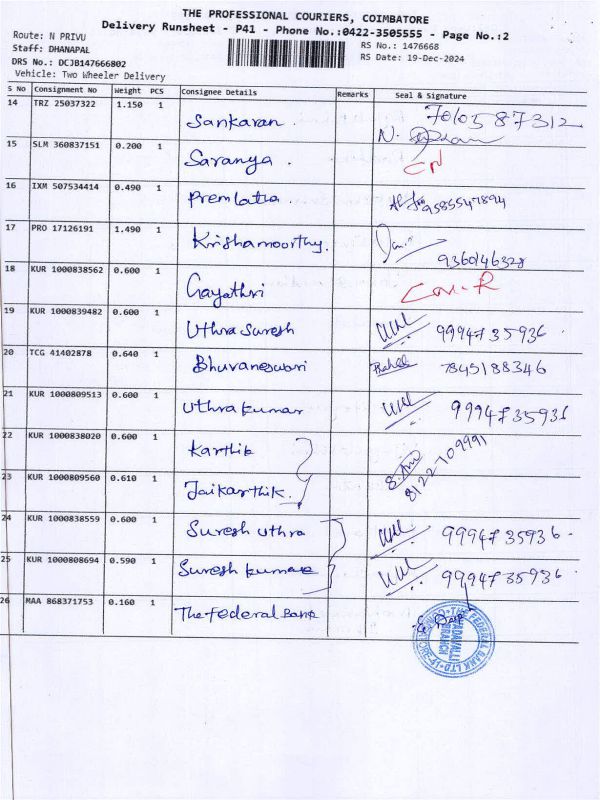 THE PROFESSIONAL COURIERS, COIMBATORE
Delivery Runsheet - P41 - Phone No.:0422-3505555 - Page No.:2
Route: N PRIVU
RS No.: 1476668
Staff: DHANAPAL
RS Date: 19-Dec-2024
DRS No.: DCJB147666802
Vehicle: Two Wheeler Delivery
S No Consignment No Weight PCS Consignee Details Remarks Seal & Signature
14 TRZ 25037322 1.150 1 Sankaran. 7010587312
N.
15 SLM 360837151 0.200 1 Saranya.
16 IXM 507534414 0.490 1 Premlatha. 9585547894
17 PRO 17126191 1.490 1 Krishamoorthy. 9360146328
18 KUR 1000838562 0.600 1 Gayathri
19 KUR 1000839482 0.600 1 Uthra Suresh 9994735936
20 TCG 41402878 0.640 1 Bhuvaneswari 7845188346
21 KUR 1000809513 0.600 1 Uthra kumar 9994735936
22 KUR 1000838020 0.600 1 Karthik 8122-109991
23 KUR 1000809560 0.610 1 Jaikarthik.
24 KUR 1000838559 0.600 1 Suresh Uthra 9994735936
25 KUR 1000808694 0.590 1 Suresh kumar 9994735936
26 MAA 868371753 0.160 1 The Federal Bank
THE FEDERAL BANK LTD
BRANCH